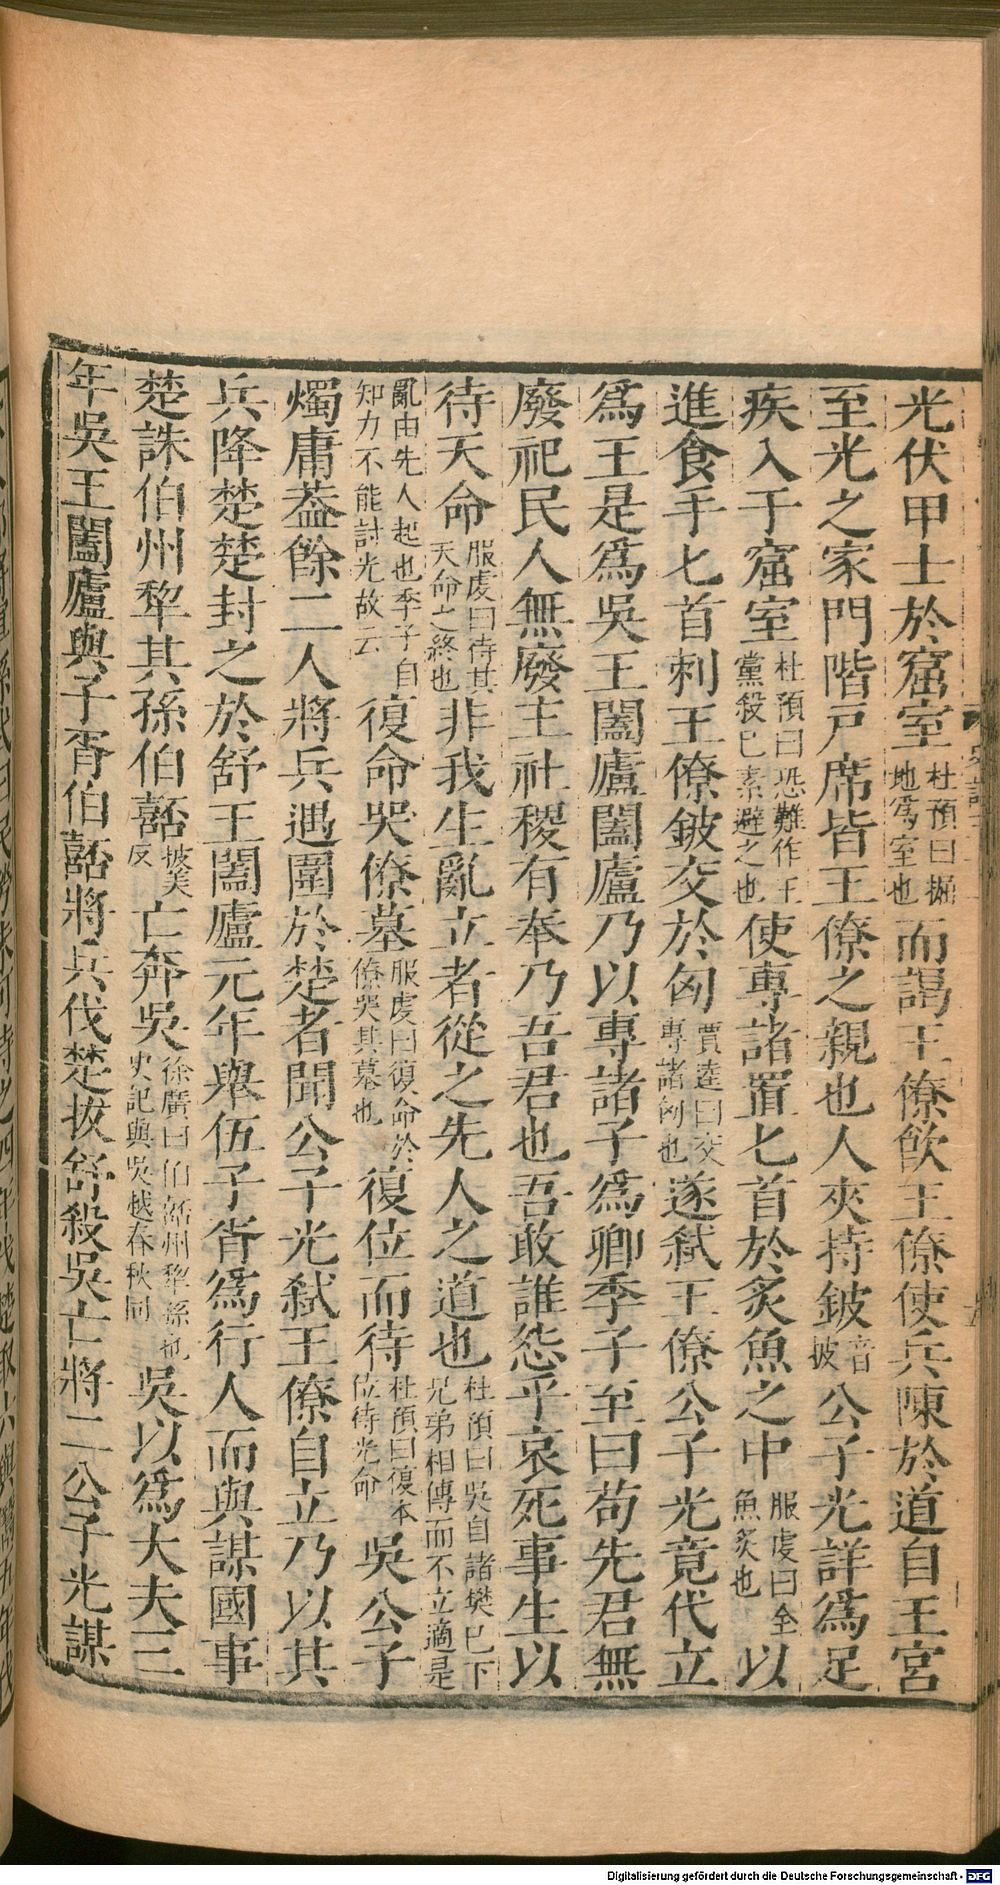 光伏甲士於窟室杜預曰掘地爲室也而謁王僚飲王僚使兵陳於道自王宮
至光之家門階戸席皆王僚之親也人夾持鈹音披公子光詳爲足
疾入于窟室杜預曰恐難作王黨殺已素避之也使專諸置匕首於炙魚之中服虔曰全魚炙也以
進食手匕首刺王僚鈹交於匈賈逵曰交專諸匈也遂弑王僚公子光竟代立
爲王是爲吳王闔廬闔廬乃以專諸子爲卿季子至曰苟先君無
廢祀民人無廢主社稷有奉乃吾君也吾敢誰怨乎哀死事生以
待天命服虔曰待其天命之終也非我生亂立者從之先人之道也杜預曰吳自諸樊已下兄弟相傳而不立適是
亂由先人起也季子自知力不能討光故云復命哭僚墓服虔曰復命於僚哭其墓也復位而待杜預曰復本位待光命吳公子
燭庸葢餘二人將兵遇圍於楚者聞公子光弑王僚自立乃以其
兵降楚楚封之於舒王闔廬元年舉伍子胥爲行人而與謀國事
楚誅伯州犂其孫伯嚭披美反亡奔吳徐廣曰伯嚭州犂孫也史記與吳越春秋同吳以爲大夫三
年吳王闔廬與子胥伯嚭將兵伐楚拔舒殺吳亡將二公子光謀
Digitalisierung gefördert durch die Deutsche Forschungsgemeinschaft - DFG